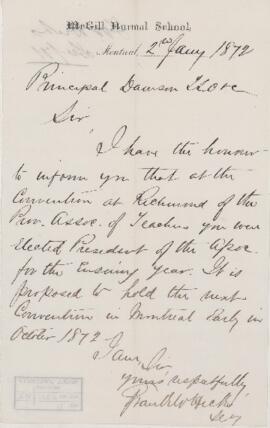 McGill Normal School,
Montreal, 2nd Jany 1872
Principal Dawson LLD &c
Sir
I have the honour
to inform you that at the
Convention at Richmond of the
Prov. Assoc. of Teachers you were
elected President of the Assoc.
for the ensuing year. It is
proposed to hold the next
Convention in Montreal early in
October 1872
I am, Sir
yours respectfully
Hicks
Secy